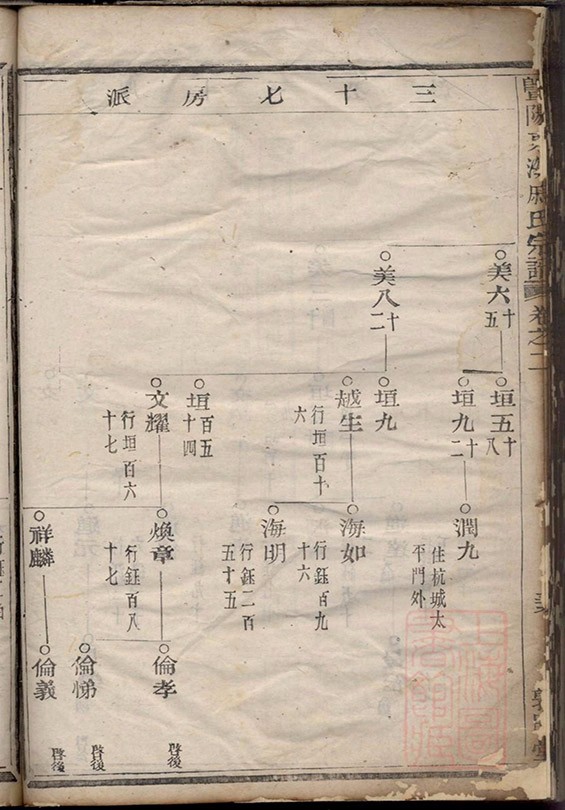 三十七房派
美六十五
美八十二
垣五十八
垣九十二
垣九
越生
行垣百十六
垣百五十四
文耀
行垣百六十七
潤九
住杭城太平門外
海如
行鈺百九十六
海明
行鈺二百五十五
煥章
行鈺百八十七
祥麟
倫孝
啓後
倫悌
啓後
倫義
啓後
氏宗譜
卷之二